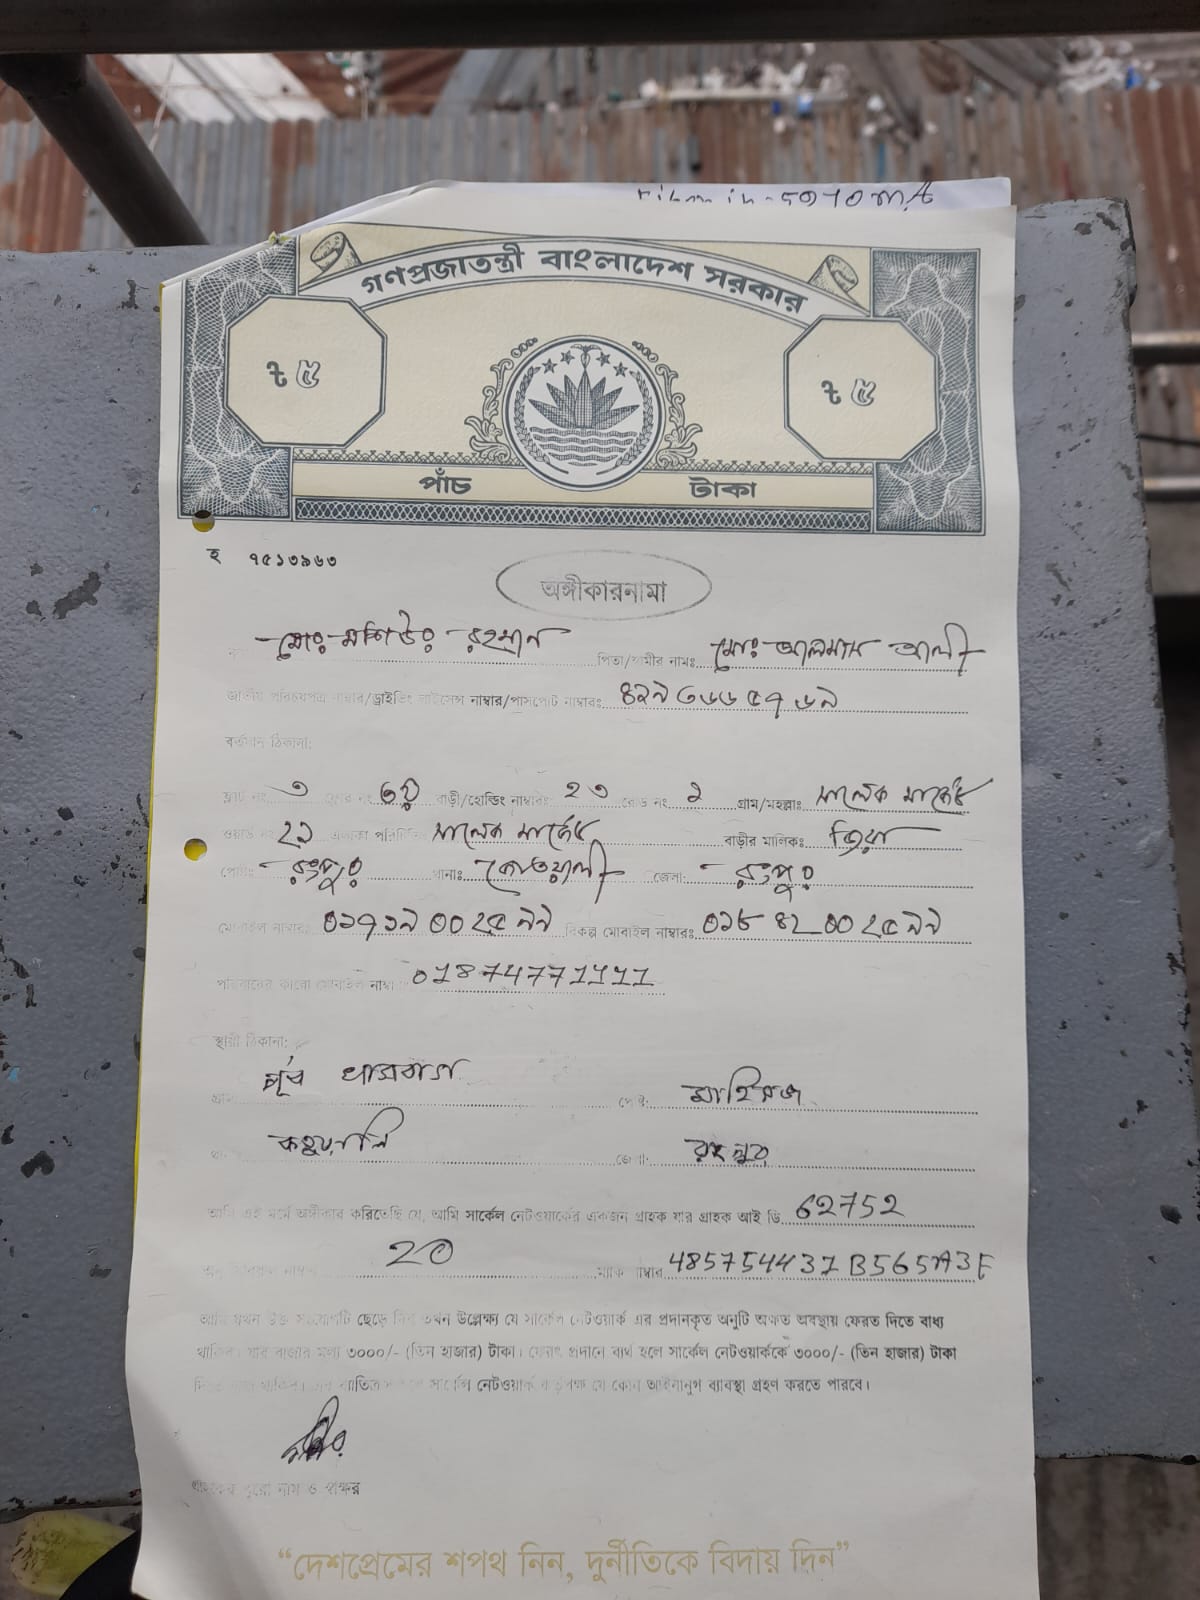 গণপ্রজাতন্ত্রী বাংলাদেশ সরকার
৳ ৫ ৳ ৫
পাঁচ টাকা
হ ৭৫১৩৯৬৩
অঙ্গীকারনামা
মোঃ মশিউর রহমান পিতা/স্বামীর নামঃ মোঃ আলমাস আলী
জাতীয় পরিচয়পত্র নাম্বার/ড্রাইভিং লাইসেন্স নাম্বার/পাসপোর্ট নাম্বারঃ ৪২৯৩৬৬৫৭৬৯
বর্তমান ঠিকানা:
ফ্লাট নং ৩ ৩য় বাড়ী/হোল্ডিং নাম্বারঃ ২৩ রোড নং ১ গ্রাম/মহল্লাঃ সালেক মার্কেট
ওয়ার্ড নং ২১ এলাকা পরিচিতি সালেক মার্কেট বাড়ীর মালিকঃ
পোষ্টঃ রংপুর থানাঃ কোতয়ালী জেলা: রংপুর
মোবাইল নাম্বার: ০১৭১৯০০২৫৯৯ বিকল্প মোবাইল নাম্বারঃ ০১৮৪২০০২৫৯৯
পরিবারের কারো মোবাইল নাম্বা 01874771111
স্থায়ী ঠিকানা:
গ্রাম পূর্ব খাসবাগ পোষ্ট: মাহিগঞ্জ
থানা জেলা: রংপুর
আমি এই মর্মে অঙ্গীকার করিতেছি যে, আমি সার্কেল নেটওয়ার্কের একজন গ্রাহক যার গ্রাহক আই ডি 62752
20 ম্যাক নাম্বার 485754437B565A3E
আমি যখন উক্ত সংযোগটি ছেড়ে দিব তখন উল্লেখ্য যে সার্কেল নেটওয়ার্ক এর প্রদানকৃত অনুটি অক্ষত অবস্থায় ফেরত দিতে বাধ্য
থাকিব। যার বাজার মূল্য ৩০০০/- (তিন হাজার) টাকা। ফেরৎ প্রদানে ব্যর্থ হলে সার্কেল নেটওয়ার্ককে ৩০০০/- (তিন হাজার) টাকা
সার্কেল নেটওয়ার্ক কর্তৃপক্ষ যে কোন আইনানুগ ব্যাবস্থা গ্রহণ করতে পারবে।
গ্রাহকের পুরো নাম ও স্বাক্ষর
“দেশপ্রেমের শপথ নিন, দুর্নীতিকে বিদায় দিন”